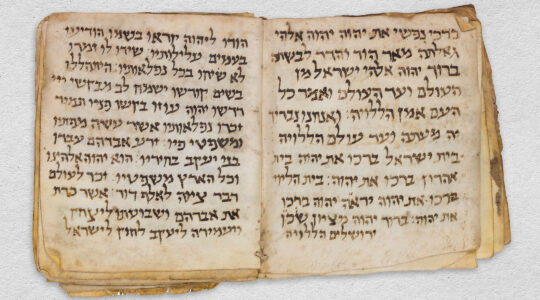 ברכי נפשי את יהוה יהוה אלהי
גדלתה מאד הוד והדר לבשת
ברוך יהוה אלהי ישראל מן
העולם ועד העולם ואמר כל
העם אמן הללויה: ואנחנו נבריך
יה מעתה ועד עולם הללויה
בית ישראל ברכו את יהוה בית
אהרון ברכו את יהוה: בית הליוי
ברכו את יהוה יראי יהוה ברכו
את יהוה: ברוך יהוה מציון שכן
ירושלים הללויה
הודו ליהוה קראו בשמו הודיעו
בעמים עלילותיו: שירו לו זמרו
לא שיחו בכל נפלאותיו: התהללו
בשים קודשו ישמח לב מבקשי ייי
דרשו יהוה עוזו בקשו פניו תמיד
זכרו נפלאותיו אשר עשה מפתיו
ומשפטי פיו: זרע אברהם עבדו
בני יעקב בחיריו: הוא יהוה אלהינו
בכל הארץ משפטיו: זכר לעולם
דבר ציוה לאלף דור: אשר כרת
את אברהם ושבועתו ליצחק
ויעמידה ליעקב לחוק לישראל